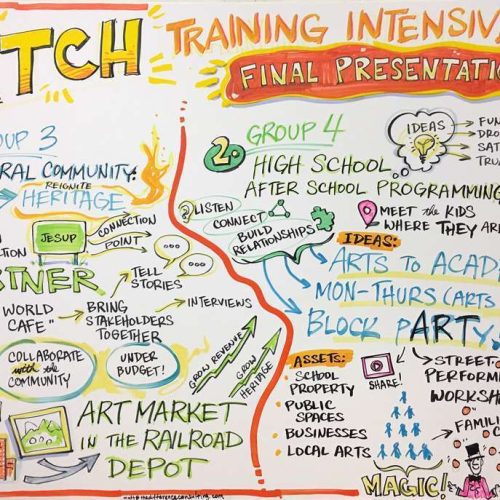 TCH
TRAINING INTENSIV
FINAL PRESENTATIO
OUP 3
RAL COMMUNITY:
REIGNITE
HERITAGE
JESUP
CONNECTION
POINT
CTION
RTNER
TELL
STORIES
WORLD
CAFE"
BRING
STAKEHOLDERS
TOGETHER
INTERVIEWS
COLLABORATE
with the
COMMUNITY
UNDER
BUDGET!
GROW REVENUE
GROW
HERITAGE
ART MARKET
IN THE RAILROAD
DEPOT
2.
GROUP 4
HIGH SCHOOL
AFTER SCHOOL PROGRAMMING
IDEAS
FUN
DRO
SAT
TRU
LISTEN
CONNECT
BUILD
RELATIONSHIPS
MEET the KIDS
WHERE THEY ARE
IDEAS:
ARTS TO ACAD
MON-THURS (ARTS
BLOCK pARTY.
ASSETS:
SCHOOL
PROPERTY
PUBLIC
SPACES
BUSINESSES
LOCAL ARTS
SHARE!
STREET
PERFORM
WORKSH
FAMILI
MAGIC!